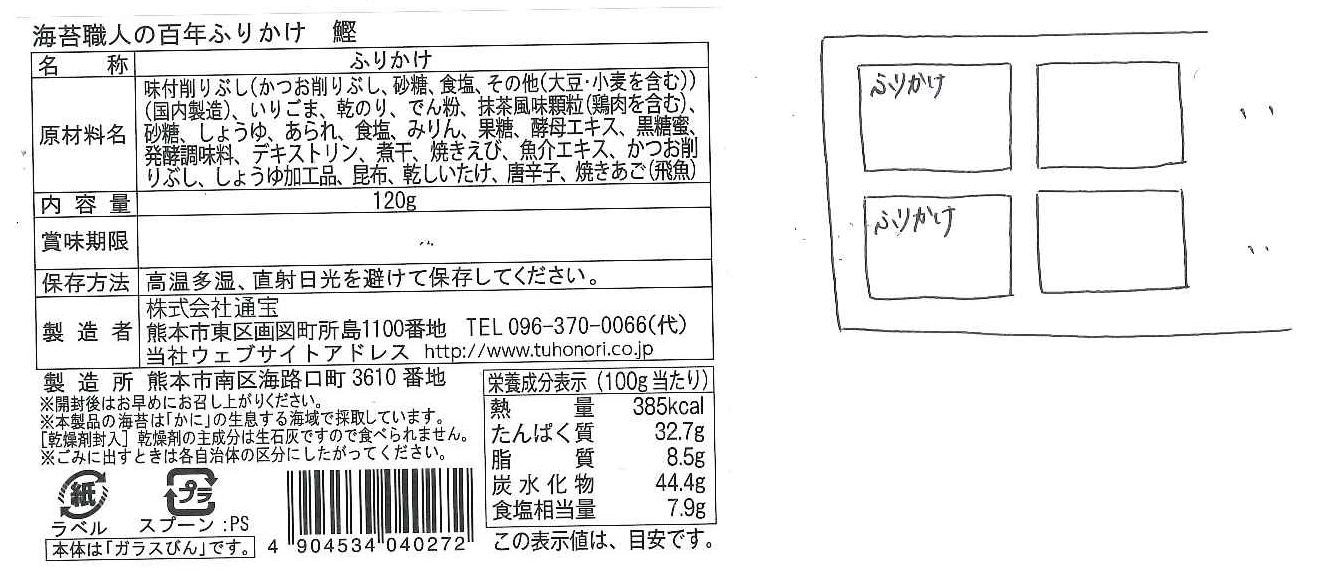 海苔職人の百年ふりかけ 鰹
名称 ふりかけ
原材料名 味付削りぶし(かつお削りぶし、砂糖、食塩、その他(大豆・小麦を含む))
(国内製造)、いりごま、乾のり、でん粉、抹茶風味顆粒(鶏肉を含む)、
砂糖、しょうゆ、あられ、食塩、みりん、果糖、酵母エキス、黒糖蜜、
発酵調味料、デキストリン、煮干、焼きえび、魚介エキス、かつお削
りぶし、しょうゆ加工品、昆布、乾しいたけ、唐辛子、焼きあご(飛魚)
内容量 120g
賞味期限
保存方法 高温多湿、直射日光を避けて保存してください。
製造者 株式会社通宝
熊本市東区画図町所島1100番地 TEL 096-370-0066(代)
当社ウェブサイトアドレス http://www.tuhonori.co.jp
製造所 熊本市南区海路口町3610番地
※開封後はお早めにお召し上がりください。
※本製品の海苔は「かに」の生息する海域で採取しています。
[乾燥剤封入] 乾燥剤の主成分は生石灰ですので食べられません。
※ごみに出すときは各自治体の区分にしたがってください。
紙
ラベル
プラ
スプーン:PS
本体は「ガラスびん」です。
4 904534 040272
栄養成分表示 (100g当たり)
熱量 385kcal
たんぱく質 32.7g
脂質 8.5g
炭水化物 44.4g
食塩相当量 7.9g
この表示値は、目安です。
ふりかけ
ふりかけ